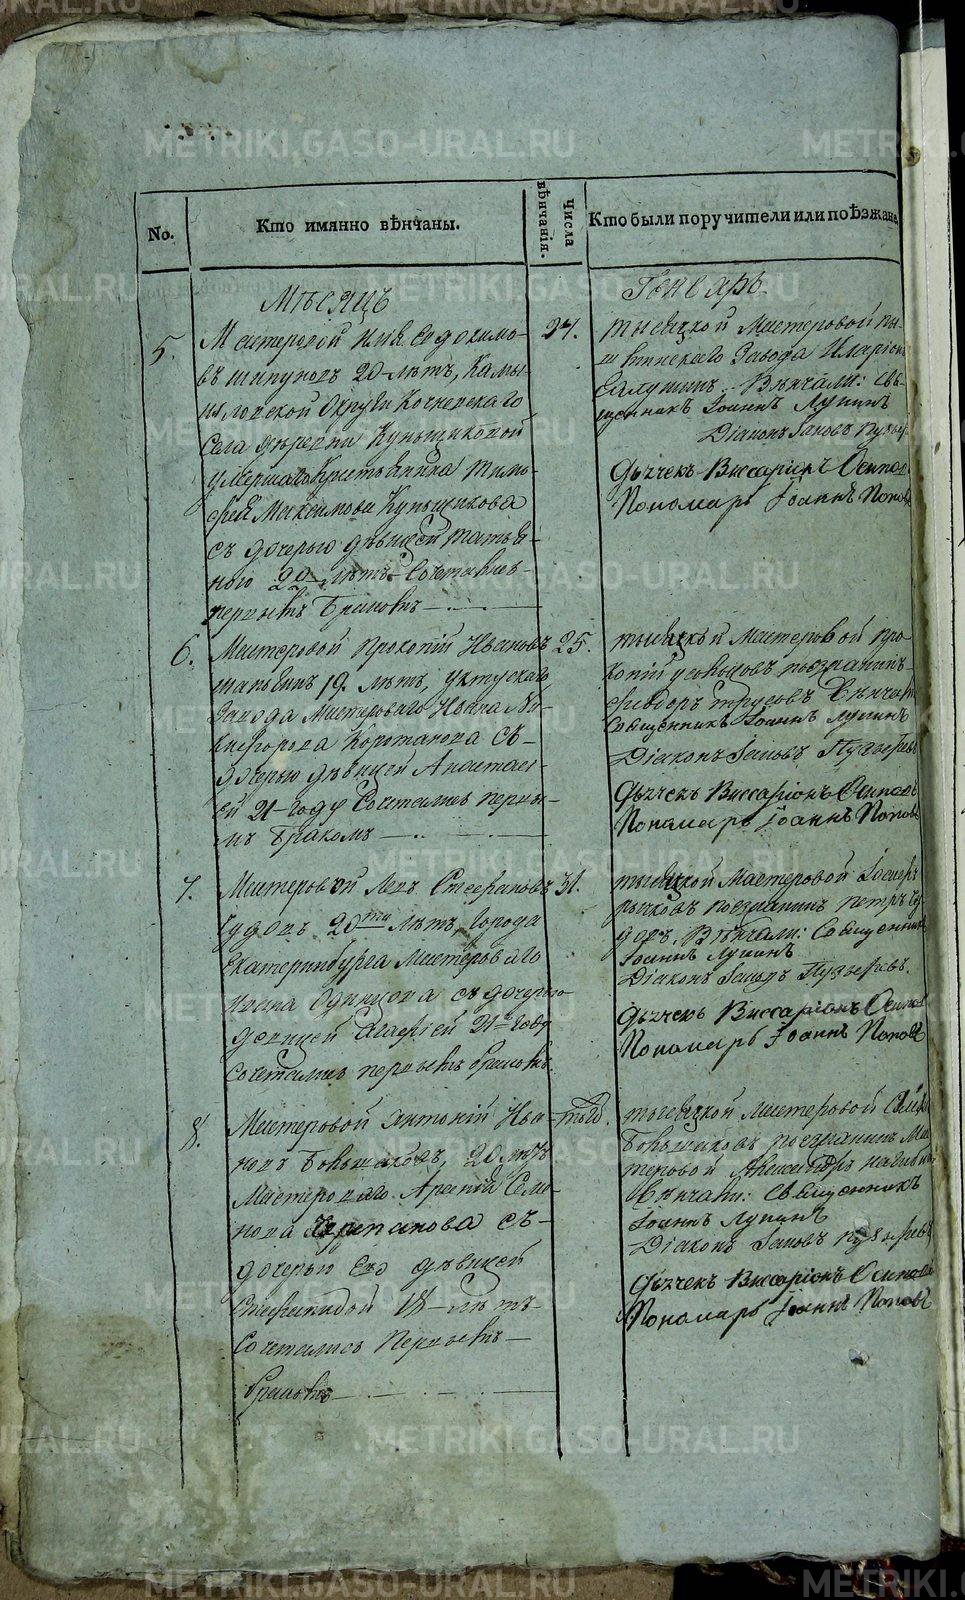 METRIKI.GASO-URAL.RU
No.
Кто имянно вѣнчаны.
Числа вѣнчанія.
Кто были поручители или поѣзжане
Мѣсяцъ
Генварь
5.
Мастеровой
въ Шипуновъ 20 лѣтъ, Камы-
шловской Округи Кочневскаго
Села деревни Куньщиковой
умершаго Крестьянина Тимо-
фея Максимова Куньщикова
съ дочерью дѣвицей Татья-
ною 22 лѣтъ Сочетались
первымъ Бракомъ
24.
тысяцкой Мастеровой
Завода Иларіонъ
Вѣнчали: Свя-
щенникъ Іоаннъ Лупинъ
Діаконъ Іаковъ
Дьячекъ Виссаріонъ Осипов
Пономарь Іоаннъ Попов
6.
Мастеровой Прокопій Ивановъ
19. лѣтъ, Уктускаго
Завода Мастероваго Ивана Ни-
Коротанова Съ
дочерью дѣвицей Анастасі-
ей 21 году Сочетались первы-
мъ Бракомъ
25.
тысяцкой Мастеровой Про-
копій поезжанинъ
Вѣнчали
Священникъ Іоаннъ Лупинъ
Діаконъ Іаковъ Пузыревъ
Дьячекъ Виссаріонъ Осиповъ
Пономарь Іоаннъ Поповъ
7.
Мастеровой Левъ Стефановъ
20ти лѣтъ, Города
Екатеринбурга Мастероваго
Ивана Одинцова съ дочерью
девицей Агафіей 21 году
Сочетались первымъ бракомъ.
31.
тысяцкой Мастеровой
Рычковъ поезжанинъ Петръ
Вѣнчали: Священникъ
Іоаннъ Лупинъ
Діаконъ Іаковъ Пузыревъ.
Дьячекъ Виссаріонъ Осипов
Пономарь Іоаннъ Поповъ
8.
Мастеровой Антоній Ива-
новъ Боньшаковъ, 20 лѣтъ
Мастероваго Арсенія Семе-
нова Черепанова съ
дочерью Его дѣвицей
Степанидой 18 лѣтъ
Сочетались Первымъ
бракомъ
тогож.
тысяцкой Мастеровой
поезжанинъ Мас-
теровой Александръ
Вѣнчали: Священникъ
Іоаннъ Лупинъ
Діаконъ Іаковъ Пузыревъ
Дьячекъ Виссаріонъ Осипов
Пономарь Іоаннъ Поповъ